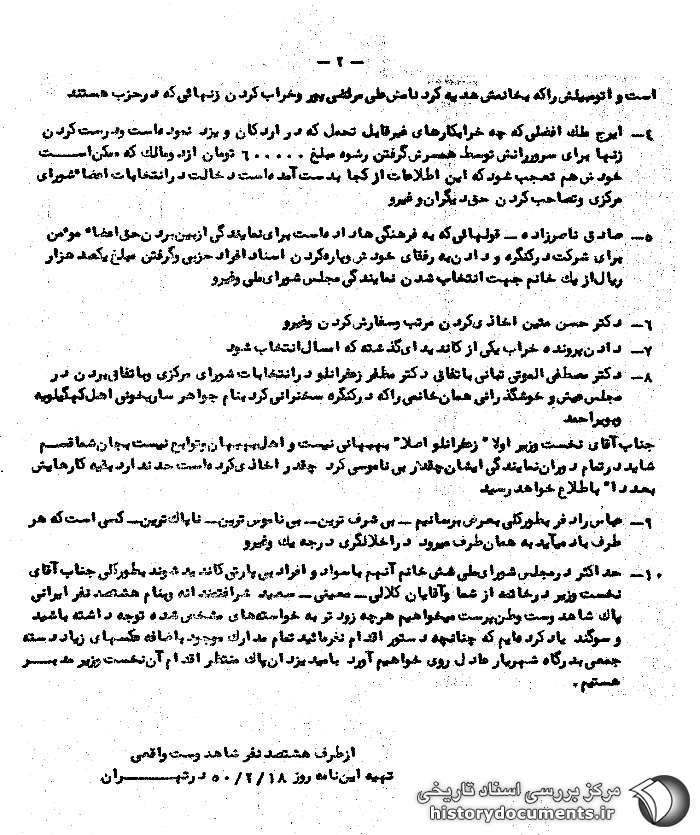 — ۲ —
است و اتومبیلش راکه بخانمش هدیه کرد نامش علی مرتضی پور وخراب کردن زنهائی که درحزب هستند
۴— ایرج ملک افضلی که چه خرابکارهای غیرقابل تحمل که در اردکان و یزد نموده است ودرست کردن
زنها برای سرورانش توسط همسرش گرفتن رشوه مبلغ ۶۰۰۰۰۰ تومان ازدومالک که ممکن است
خودش هم تعجب شود که این اطلاعات از کجا بدست آمده است دخالت درانتخابات اعضاء شورای
مرکزی وتصاحب کردن حق دیگران وغیرو
۵— صادق ناصرزاده — قولهائی که به فرهنگی ها داده است برای نمایندگی ازبین بردن حق اعضاء مومن
برای شرکت درکنگره و دادن به رفقای خودش وپاره کردن اسناد افراد حزبی وگرفتن مبلغ یکصد هزار
ریال از یک خانم جهت انتخاب شدن نمایندگی مجلس شورای ملی وغیرو
۶— دکتر حسن متین اخاذی کردن مرتب وسفارش کردن وغیرو
۷— دادن پرونده خراب یکی از کاندیدای گذشته که امسال انتخاب شود
۸— دکتر مصطفی الموتی تبانی باتفاق دکتر مظفر زعفرانلو درانتخابات شورای مرکزی وباتفاق بردن در
مجلس عیش و خوشگذرانی همان خانمی راکه درکنگره سخنرانی کرد بنام جواهر ساریخوش اهل کهگیلویه
وبویراحمد
جناب آقای نخست وزیر اولاً زعفرانلو اصلاً بهبهانی نیست و اهل بهبهان وتوابع نیست بجان شما قسم
شاید درتمام دوران نمایندگی ایشان چقدر بی ناموسی کرد چقدر اخاذی کرده است حد ندارد بقیه کارهایش
بعداً باطلاع خواهد رسید
۹— عباس رادفر بطورکلی بعرض برسانیم — بی شرف ترین — بی ناموس ترین — ناپاک ترین — کسی است که هر
طرف باد میآید به همان طرف میرود دراخلالگری درجه یک وغیرو
۱۰— حداکثر درمجلس شورای ملی شش خانم آنهم باسواد و افراد بی پارتی کاندید شوند بطورکلی جناب آقای
نخست وزیر درخاتمه از شما وآقایان کلالی — معینی — سعید شرافتمندانه وبنام هشتصد نفر ایرانی
پاک شاهدوست وطن پرست میخواهیم هرچه زود تر به خواسته های مشخص شده توجه داشته باشید
و سوگند یاد کرده ایم که چنانچه دستور اقدام نفرمائید تمام مدارک موجود باضافه عکسهای زیاد دسته
جمعی بدرگاه شهریار عادل روی خواهیم آورد بامید یزدان پاک منتظر اقدام آن نخست وزیر مدبر
هستیم .
ازطرف هشتصد نفر شاهدوست واقعی
تهیه این نامه روز ۵۰/۲/۱۸ درتهران
مرکز بررسی اسناد تاریخی
historydocuments.ir